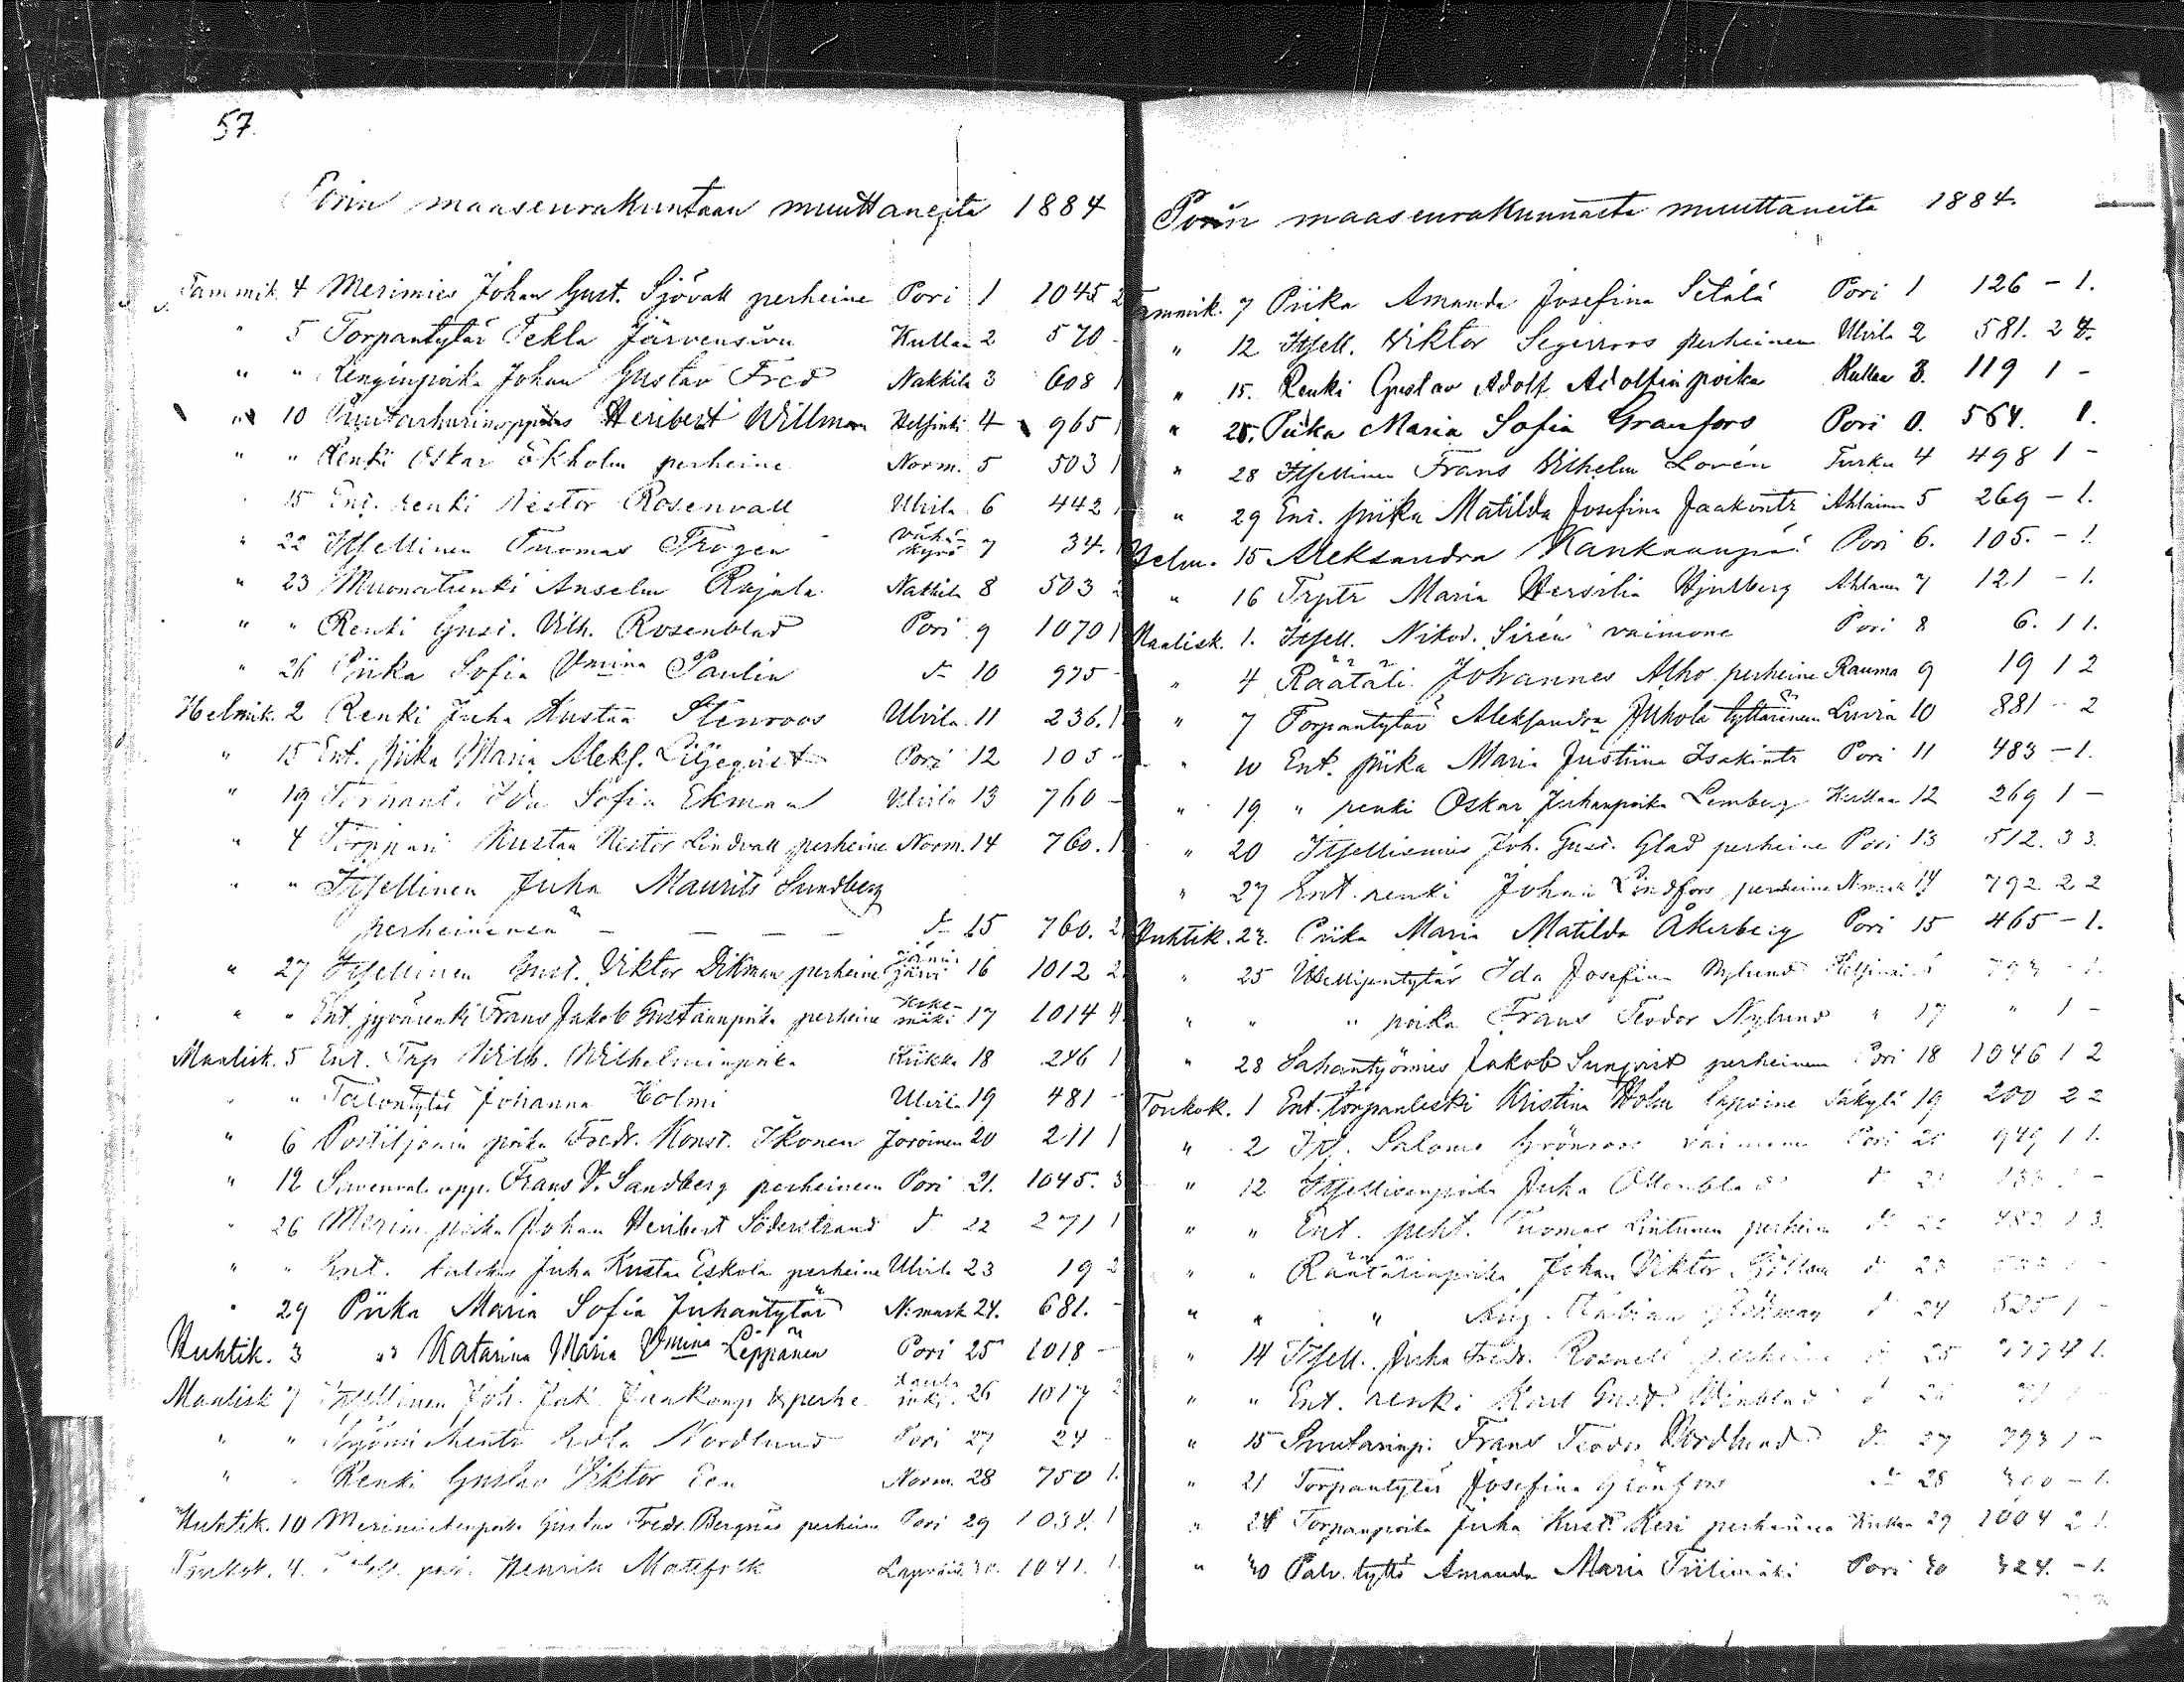 57.
Porin maaseurakuntaan muuttaneita 1884
Tammik. 4 Merimies Johan Gust. Sjövall perheine Pori 1 1045 2
" 5 Torpantytär Tekla Järvensivu Kullaa 2 570 -
" " Renginpoika Johan Gustav Fred Nakkila 3 608 1
" 10 Heribert Willman Helsinki 4 965 1
" " Renki Oskar Ekholm perheine Norm. 5 503 1
15 Ent. renki Nestor Rosenvall Ulvila 6 442 1
" 22 Itsellinen Tuomas Trogen Vähä-kyrö 7 34. 1
" 23 Muonarenki Anselm Rajala Nakkila 8 503 2
" " Renki Gust. Vilh. Rosenblad Pori 9 1070 1
" 26 Piika Sofia Vmina Paulin d:o 10 975 -
Helmik. 2 Renki Juha Kustaa Stenroos Ulvila 11 236. 1
" 15 Ent. piika Maria Aleks. Liljeqvist Pori 12 105 -
" 19 Ida Sofia Ekman Ulvila 13 760 -
" 4 Torppari Kustaa Nestor Lindvall perheine Norm. 14 760. 1
" " Itsellinen Juha Maurits Sundberg
perheinensä - - - - d:o 15 760. 2
" 27 Itsellinen Gust. Viktor Dikman perheine järvi 16 1012 2
" " Ent. jyvärenki Frans Jakob Gustaanpoika perheine mäki 17 1014 4
Maalisk. 5 Ent. Trp Wilh. Wilhelminpoika Kiikka 18 246 1
" Talontytär Johanna Holmi Ulvila 19 481 -
" 6 Postiljonin poika Fredr. Konst. Ikonen Joroinen 20 211 1
" 12 opp. Frans V. Sandberg perheineen Pori 21. 1045. 3
" 26 Merim. poika Johan Heribert Söderstrand d:o 22 271 1
" " Ent. Juha Kustaa Eskola perheine Ulvila 23 19 2
" 29 Piika Maria Sofia Juhantytär N:mark 24. 681. -
Huhtik. 3 " Katarina Maria Vmina Leppänen Pori 25 1018 -
Maalisk 7 Itsellinen Joh. Jak. perhe 26 1017 2
" " Nordlund Pori 27 24 -
" Renki Gustav Viktor Een Norm. 28 750 1.
Huhtik. 10 Gustav Fredr. Bergnäs perheine Pori 29 1034. 1
Toukok. 4. Henrik 30. 1041. 1.
Porin maaseurakunnasta muuttaneita 1884.
Tammik. 7 Piika Amanda Josefina Setälä Pori 1 126 - 1.
" 12 Itsell. Wiktor Segerroos perheineen Ulvila 2 581. 2
" 15. Renki Gustav Adolf Adolfinpoika Kullaa 3. 119 1 -
" 25. Piika Maria Sofia Granfors Pori 0. 564. 1.
" 28 Itsellinen Frans Vilhelm Lovén Turku 4 498 1 -
" 29 Ent. piika Matilda Josefina Jaakontr Ahlainen 5 269 - 1.
Helm. 15 Aleksandra Kankaanpää Pori 6. 105. - 1.
" 16 Trptr Maria Hersilia Hjulberg Ahlainen 7 121 - 1.
Maalisk. 1. Itsell. Nikod. Sirén vaimone Pori 8 6. 1 1.
" 4 Räätäli Johannes Alho perheine Rauma 9 19 1 2
" 7 Torpantytär Aleksandra Juhola tyttärineen Luvia 10 881 - 2
" 10 Ent. piika Maria Justiina Isakintr Pori 11 483 - 1.
" 19 " renki Oskar Juhanpoika Lemberg Kullaa 12 269 1 -
" 20 Itsellismies Joh. Gust. Glad perheine Pori 13 512. 3 3.
" 27 Ent. renki Johan Lindfors perheine N:mark 14 792 2 2
Huhtik. 22. Piika Maria Matilda Åkerberg Pori 15 465 - 1.
" 25 Itsellisentytär Ida Josefina Nylund Helsinki 793 - 1.
" " " poika Frans Teodor Nylund " 17 " 1 -
" 28 Sahantyömies Jakob Sunqvist perheineen Pori 18 1046 1 2
Toukok. 1 Ent. torpanleski Kristina Holm lapsine Säkylä 19 200 2 2
" 2 Its. Salomo Grönroos vaimone Pori 20 949 1 1.
" 12 Itsellisenpoika Juha d:o 21 -
" " Ent. Tuomas Lintunen perheine d:o 22 482 1 3.
" " Räätälinpoika Johan Viktor d:o 23 -
" " " d:o 24 525 1 -
" 14 Itsell. Juha Fredr. Rosnell perheine d:o 25 1.
" " Ent. renki Karl Gust. Winblad d:o 26
" 15 Suutarinp. Frans Teodor Nordlund d:o 27 793 1 -
" 21 Torpantytär Josefina Grönfors d:o 28 300 - 1.
" 28 Torpanpoika Juha Kust. Keri perheineen 29 1004 2 1.
" 30 Palv. tyttö Amanda Maria Tiilimäki Pori 30 324. - 1.